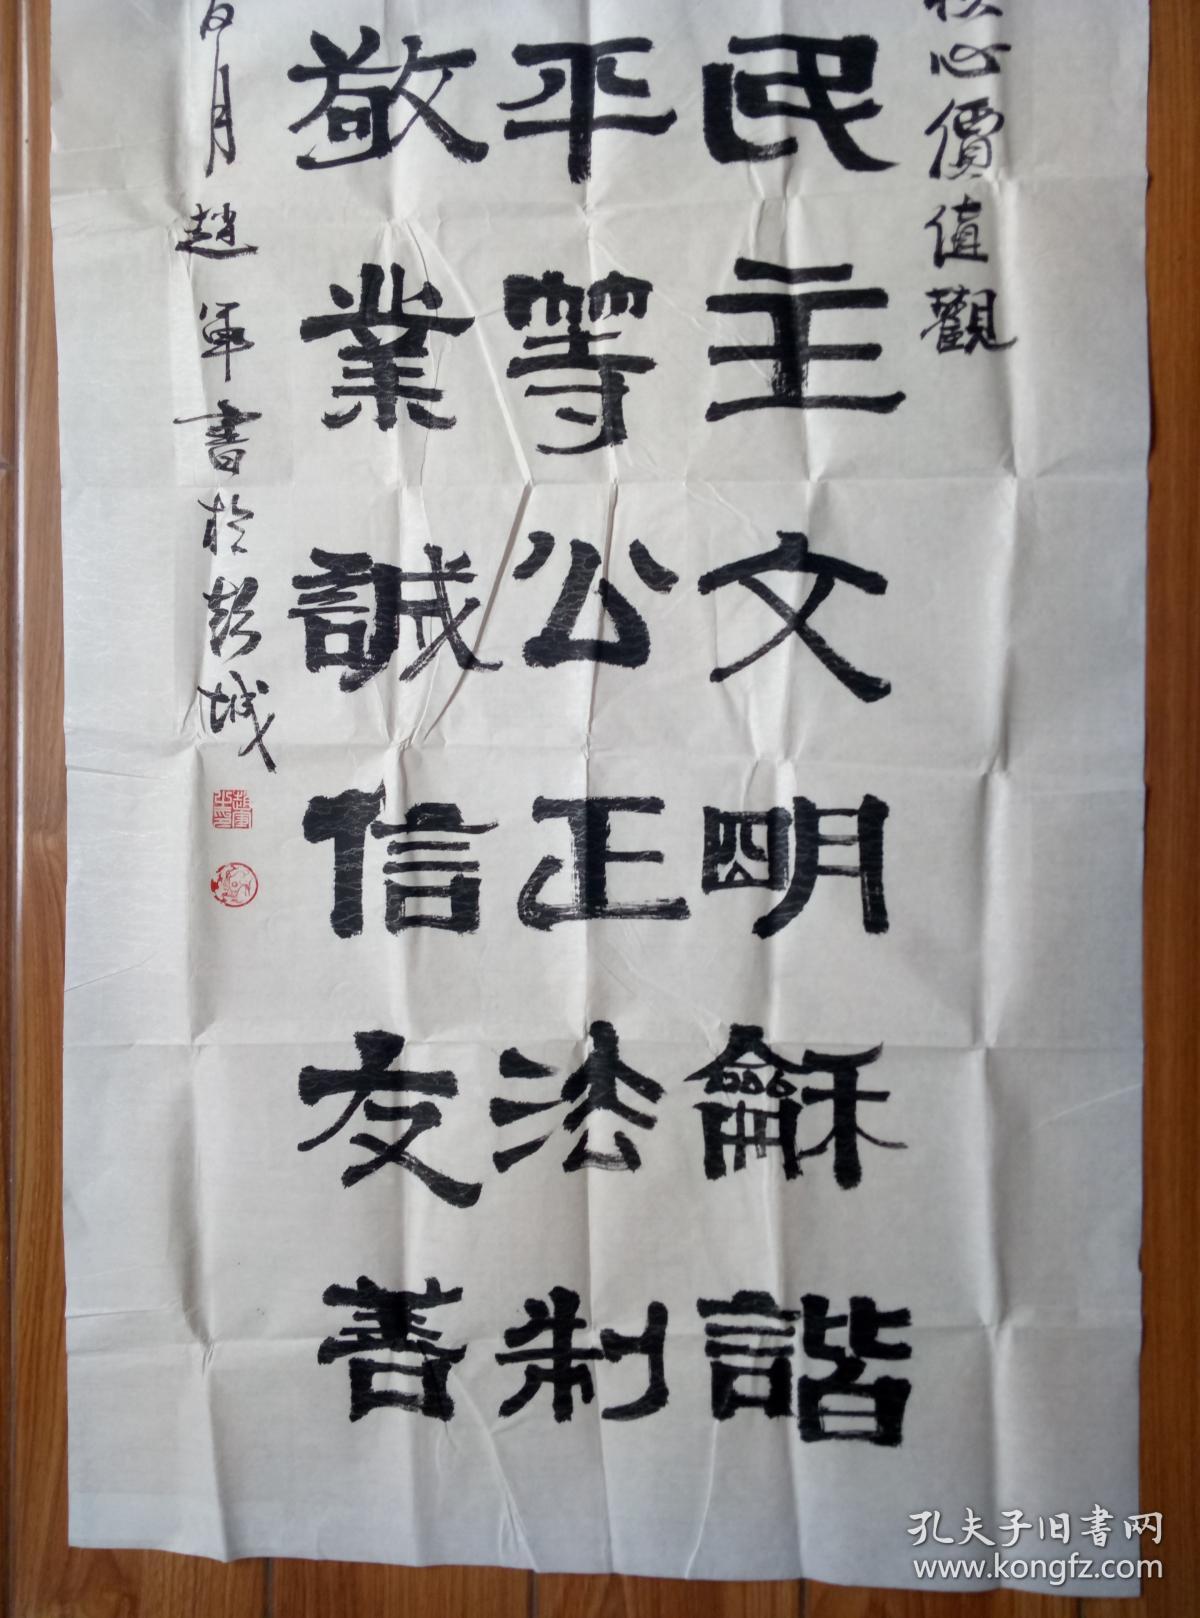 心價值觀
民主文明龢諧
平等公正法制
敬業誠信友善
月趙軍書於彭城
趙軍之印
孔夫子旧书网
www.kongfz.com